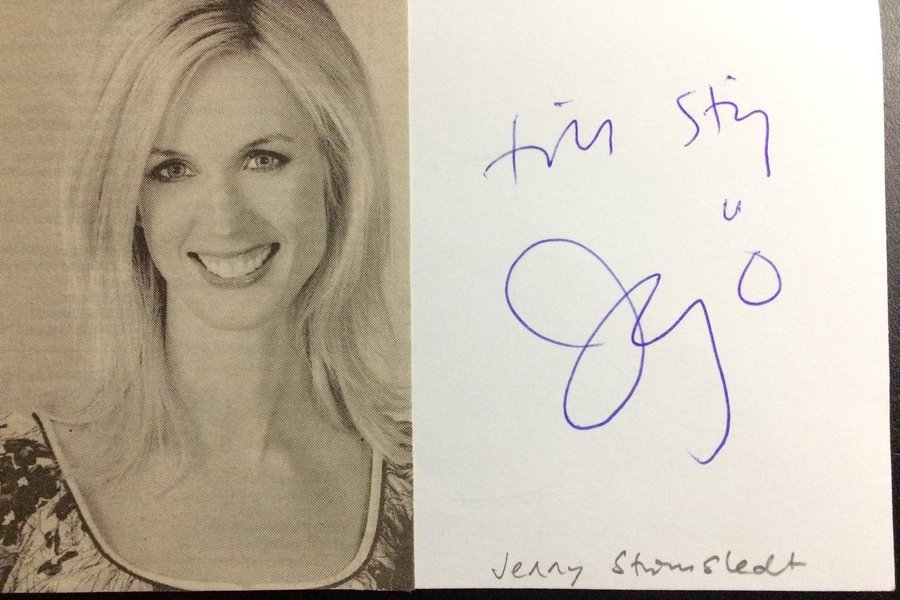 till Stig
Jenny Strömstedt